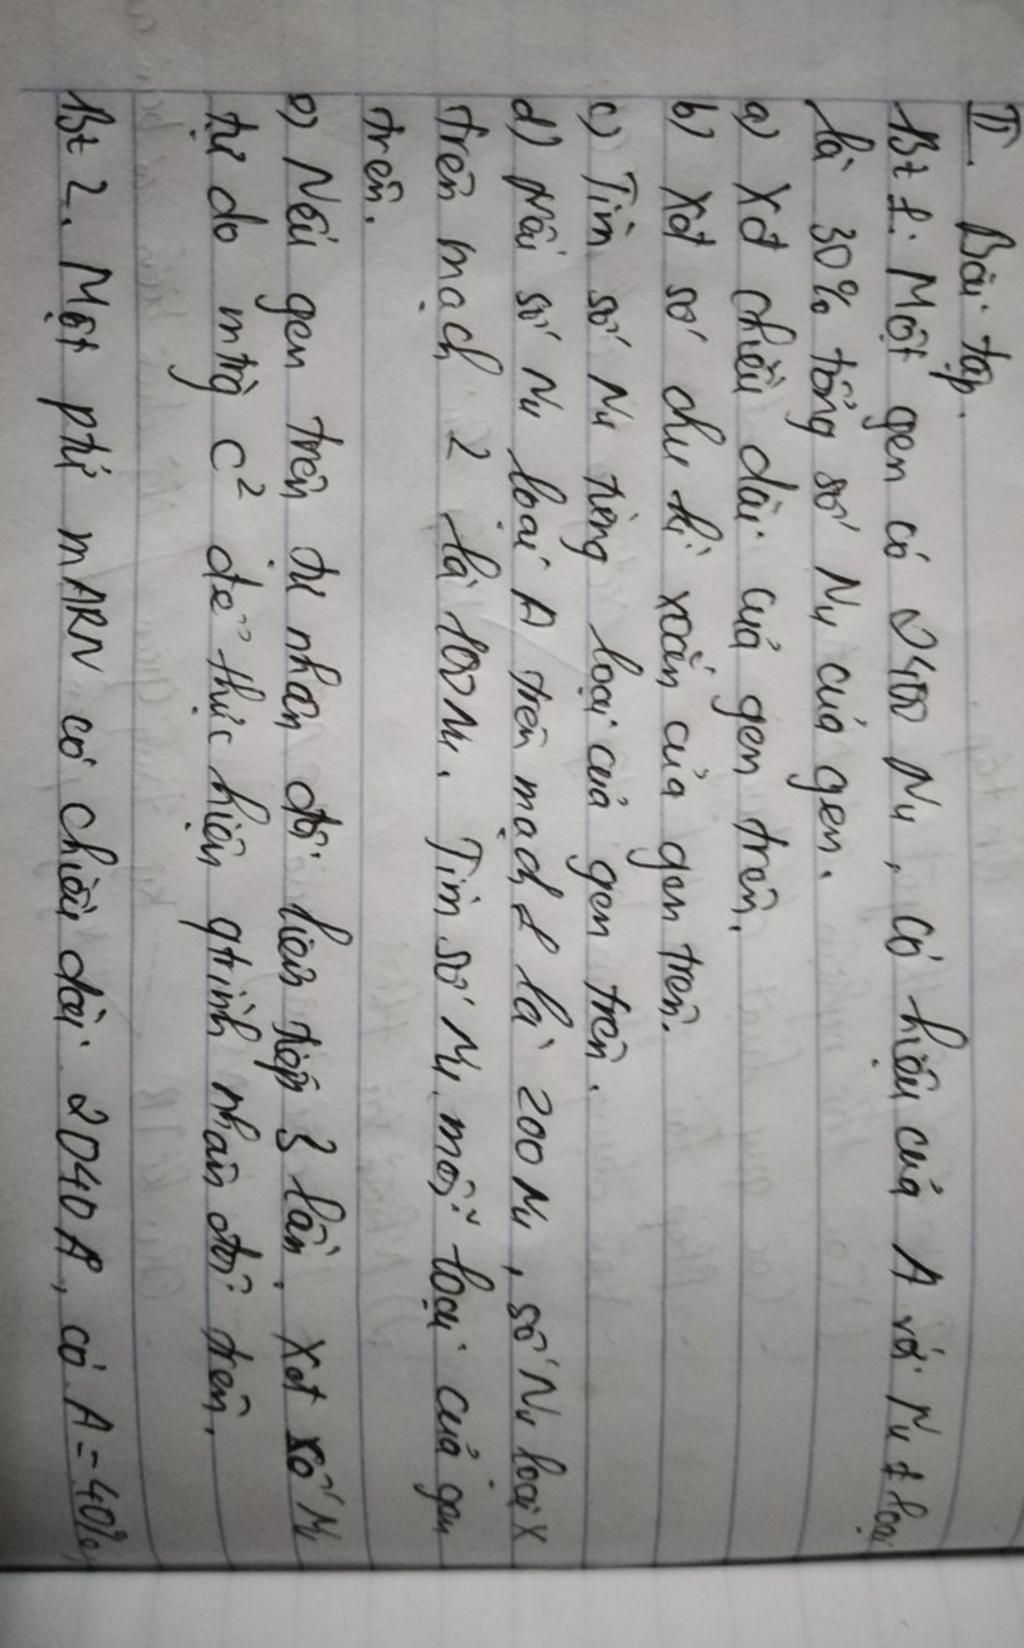 II. Bài tập.
Bt 1. Một gen có 2400 Nu, có hiệu của A với Nu 1 loại
là 30% tổng số Nu của gen.
a) Xđ chiều dài của gen trên.
b) Xđ số chu kì xoắn của gen trên.
c) Tìm số Nu từng loại của gen trên.
d) Nếu số Nu loại A trên mạch 1 là 200 Nu, số Nu loại X
trên mạch 2 là 100 Nu. Tìm số Nu mỗi loại của gen
trên.
e) Nếu gen trên tự nhân đôi liên tiếp 3 lần. Xđ số Nu
tự do mtrg c² để thực hiện qtrình nhân đôi trên.
Bt 2. Một ptử mARN có chiều dài 2040A, có A=40%,